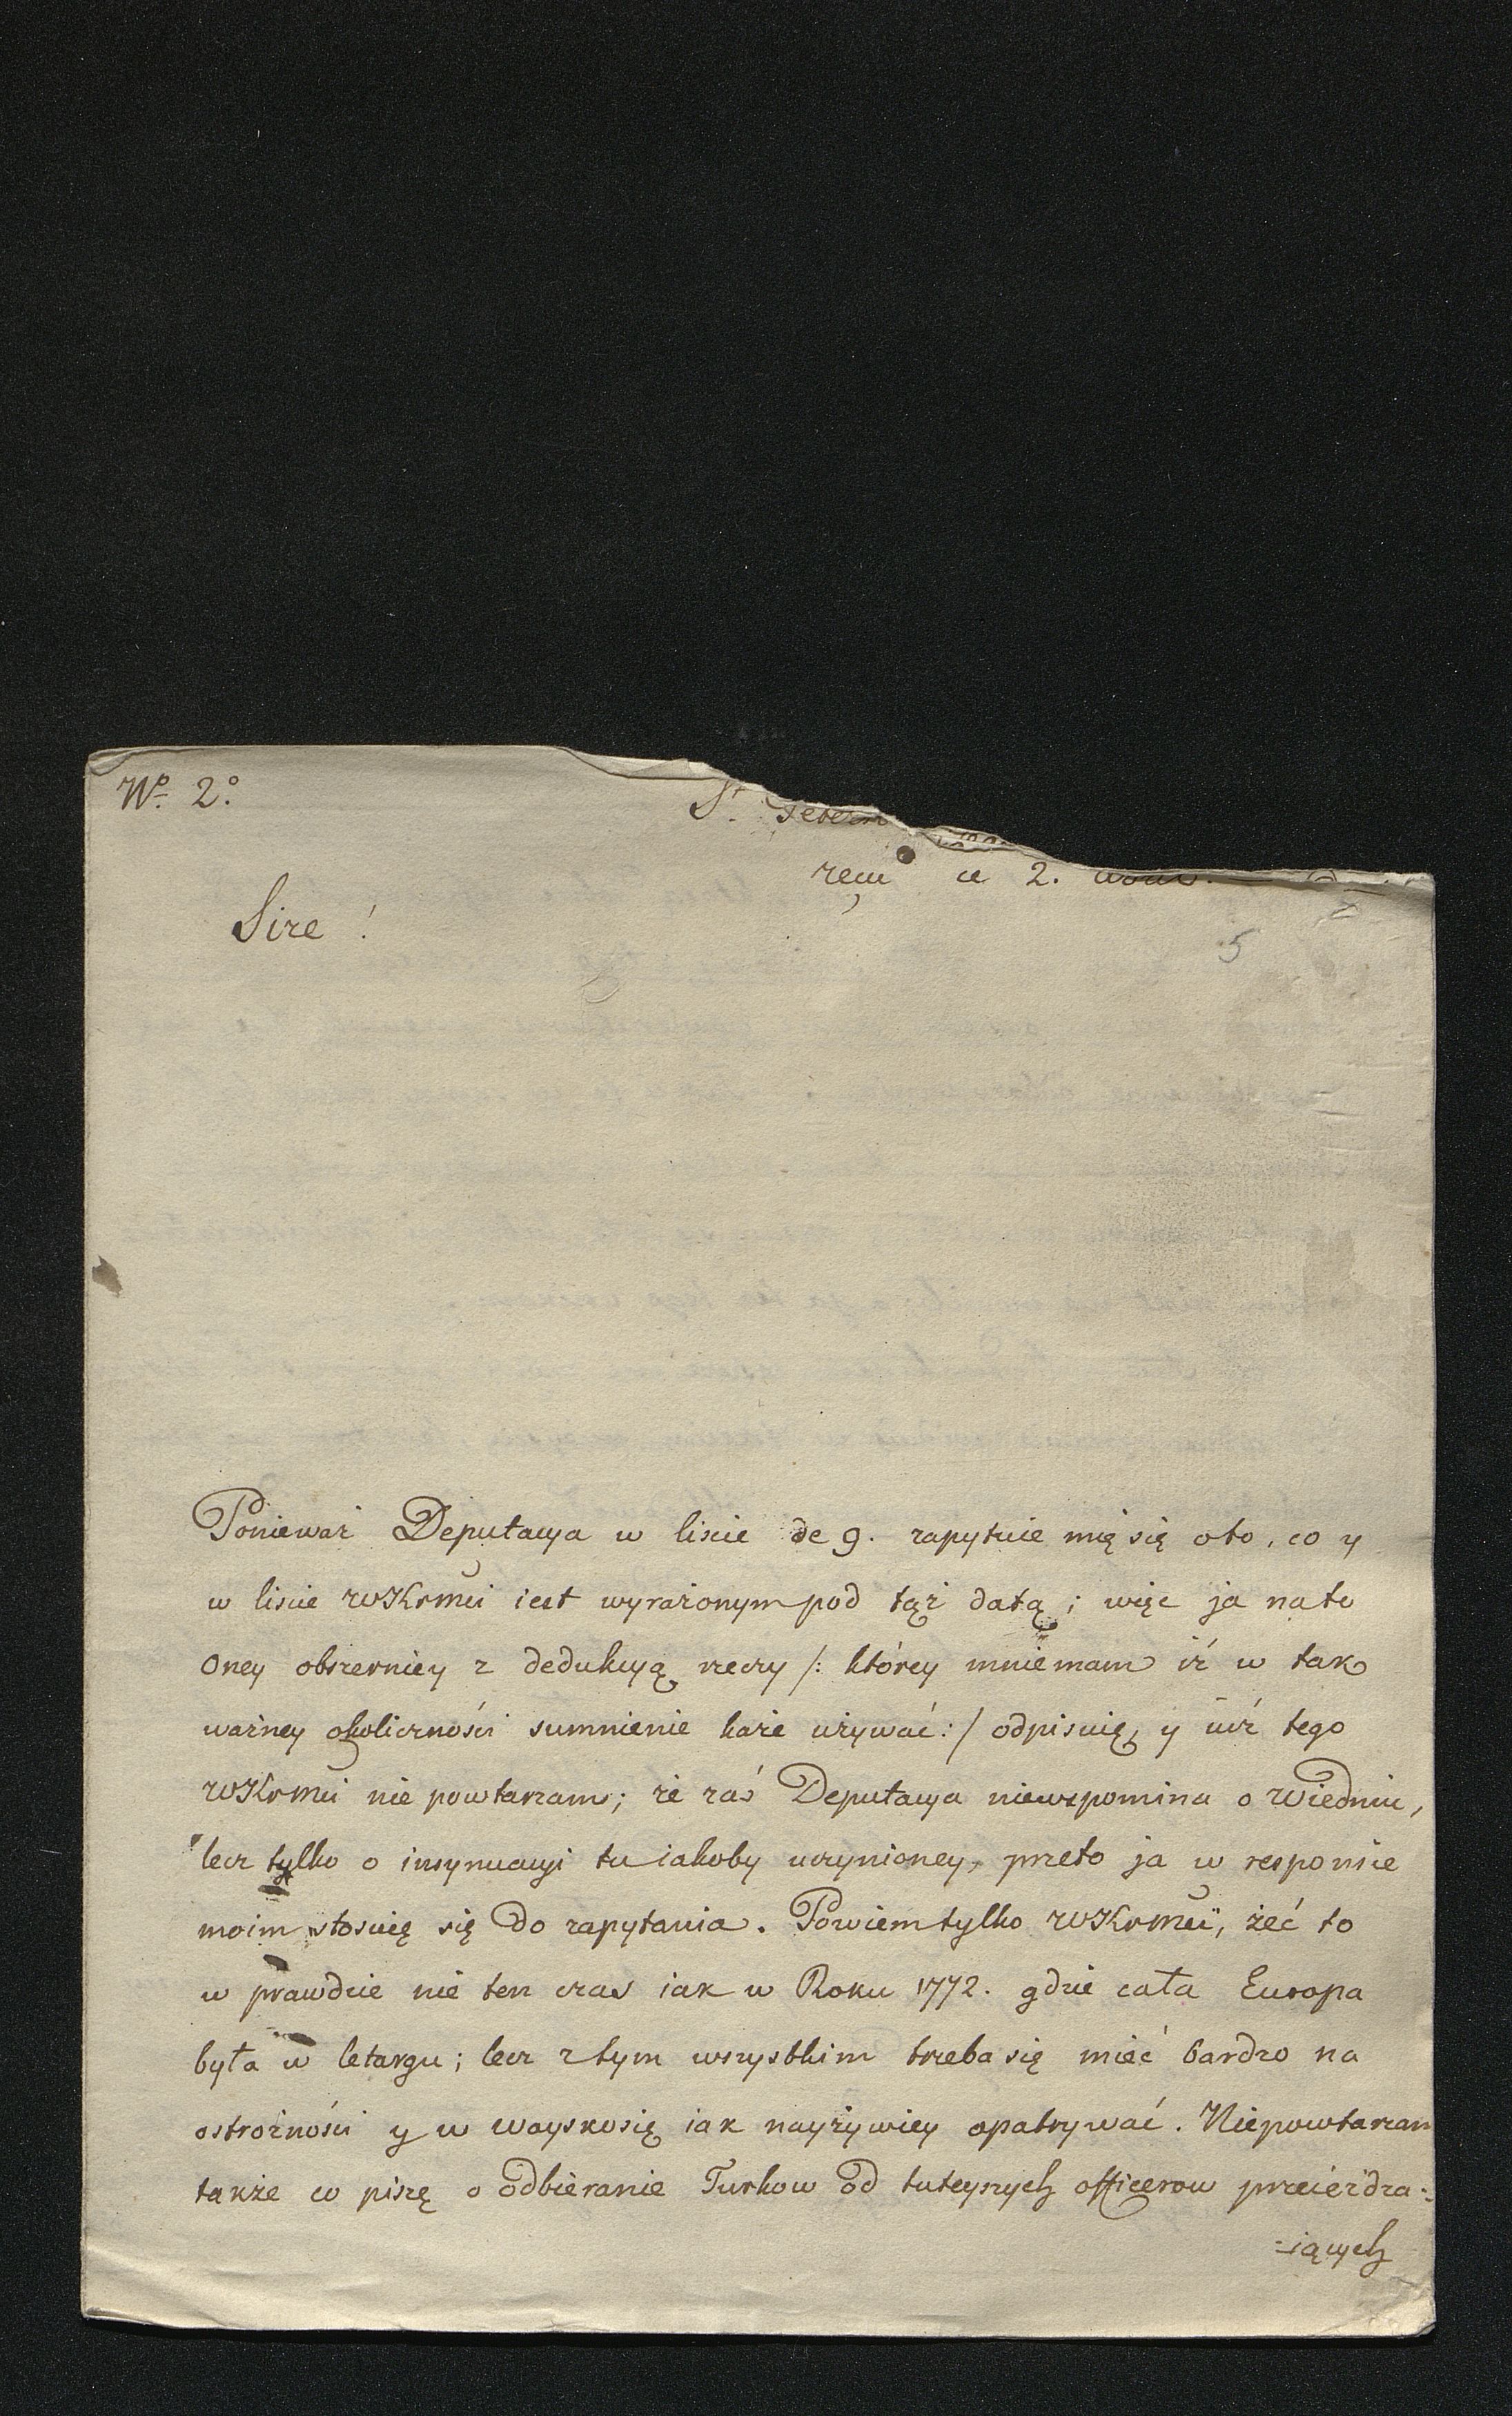 Nº 2º
St. Petersb
Sire !
5
Ponieważ Deputacya w liscie de 9. zapytuie mię się oto, co y
w liscie WKrmci iest wyrażonym pod tąż datą; więc ja na to
oney obszerniey z dedukcyą rzeczy /: którey mniemam iż w tak
ważney okoliczności sumnienie każe używać :/ odpisuię, y iuż tego
WKrmci nie powtarzam; że zaś Deputacya niewspomina o Wiedniu,
lecz tylko o insynuacyi tu iakoby uczynioney, przeto ja w responsie
moim stosuię się do zapytania. Powiem tylko WKrmci, żeć to
w prawdzie nie ten czas iak w Roku 1772. gdzie cała Europa
była w letargu; lecz z tym wszystkim trzeba się mieć bardzo na
ostrożności y w woysko się iak nayżywiey opatrywać. Niepowtarzam
także co piszę o odbieranie Turkow od tuteyszych officerow przeieżdza=
=iących